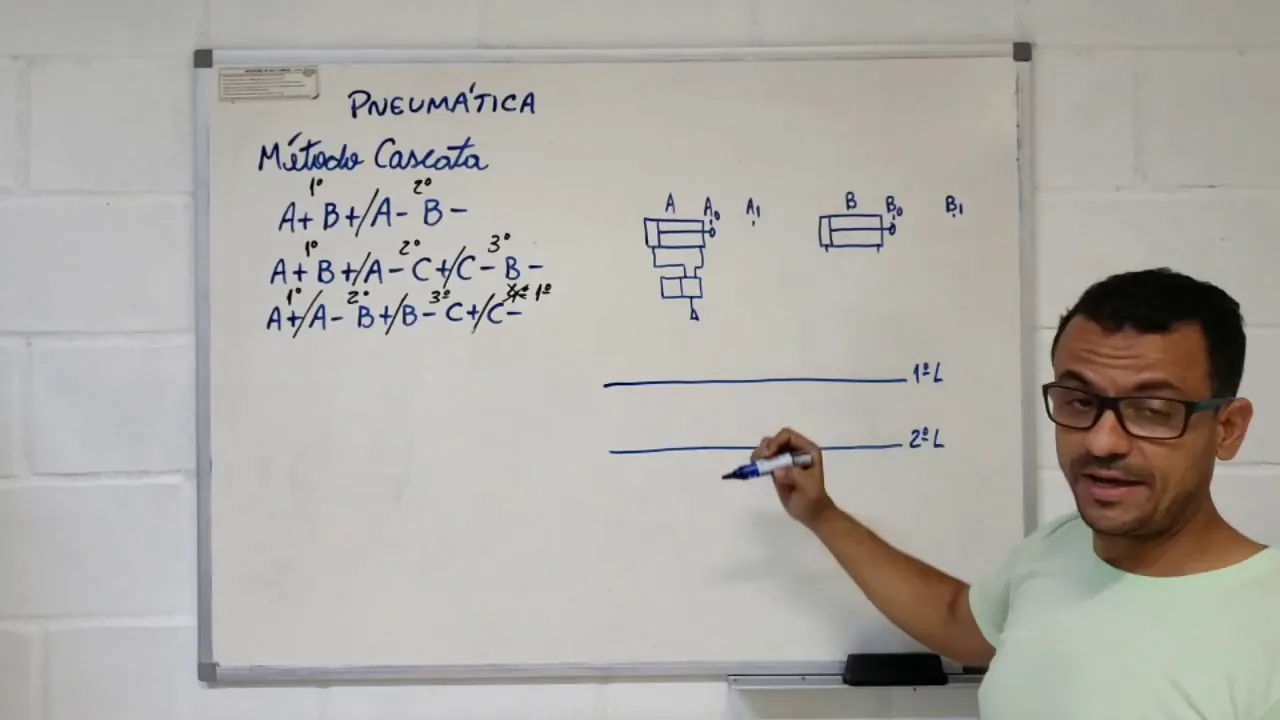 PNEUMÁTICA
Método Cascata
1º 2º
A+ B+/A- B-
1º 2º 3º
A+ B+/A- C+/C- B-
1º 2º 3º 4º 1º
A+/A- B+/B- C+/C-
A A₀ A₁ B B₀ B₁
1º L
2º L